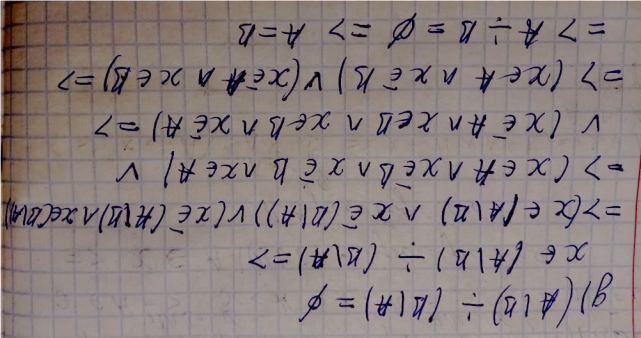 g) (A\B) ÷ (B\A) = ∅
x ∈ (A\B) ÷ (B\A) =>
=> (x ∈ (A\B) ∧ x ∈̄ (B\A)) ∨ (x ∈̄ (A\B) ∧ x ∈ (B\A))
=> (x ∈ A ∧ x ∈̄ B ∧ x ∈̄ B ∧ x ∈ A) ∨
∨ (x ∈̄ A ∧ x ∈ B ∧ x ∈ B ∧ x ∈̄ A) =>
=> (x ∈ A ∧ x ∈̄ B) ∨ (x ∈̄ A ∧ x ∈ B) =>
=> A ÷ B = ∅ => A = B